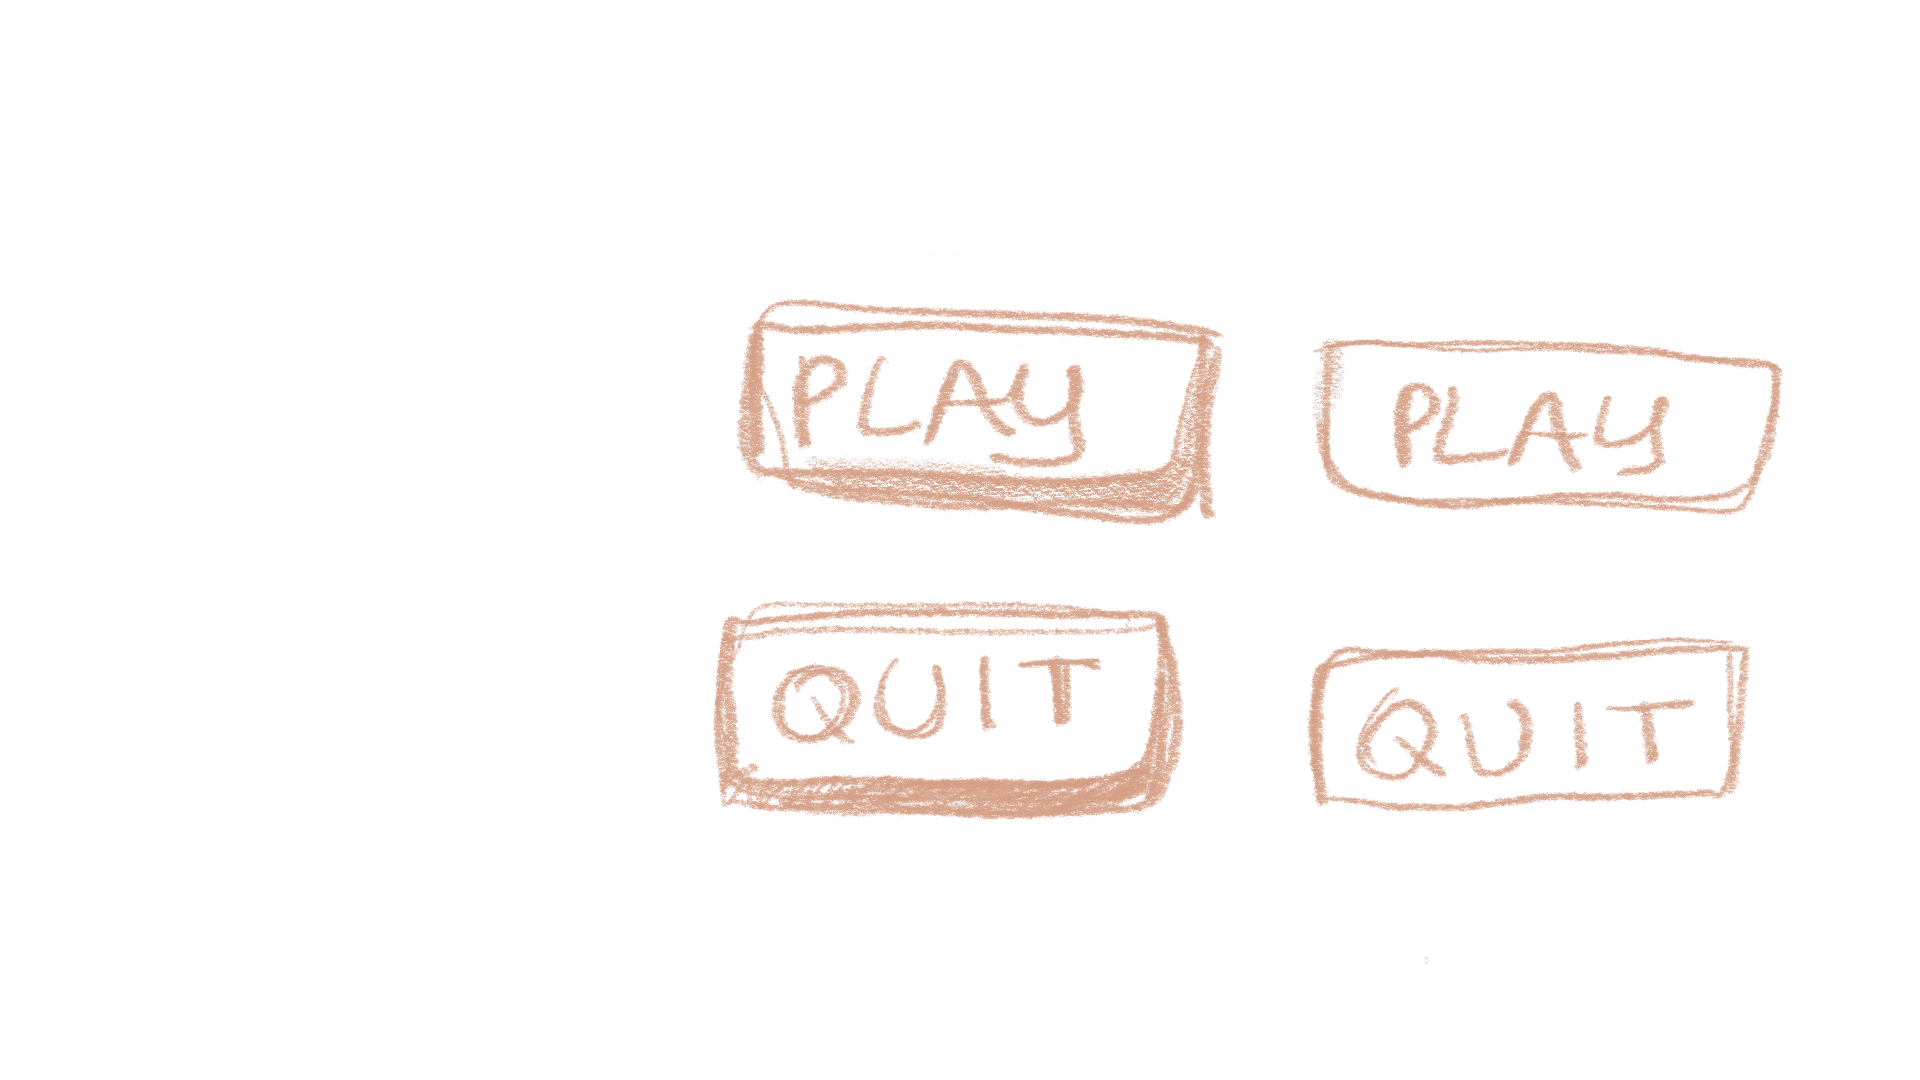 PLAY PLAY
QUIT QUIT